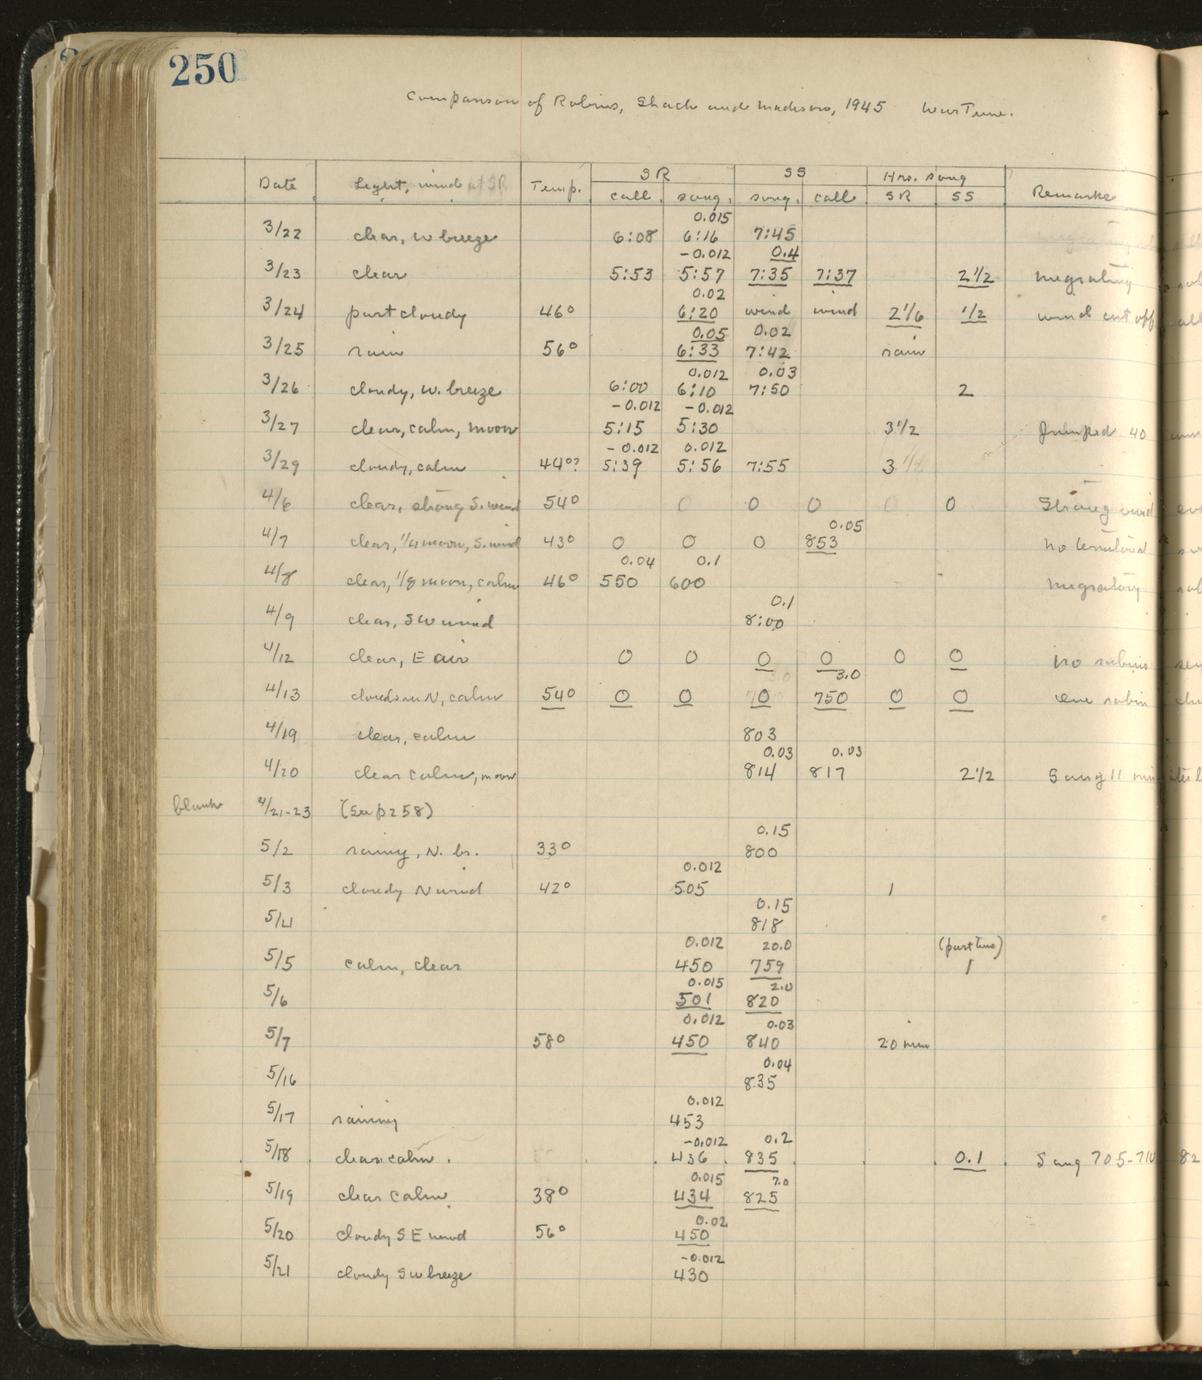 250
Comparison of Robins, Shack and Madison, 1945 War Time.
SR SS Hrs. song
Date Light, wind at SR Temp. call song song call SR SS Remarks
0.015
3/22 clear, W breeze 6:08 6:16 7:45
-0.012 0.4
3/23 clear 5:53 5:57 7:35 7:37 2 1/2 migrating
0.02
3/24 part cloudy 46° 6:20 wind wind 2 1/6 1/2 wind cut off
0.05 0.02
3/25 rain 56° 6:33 7:42 rain
0.012 0.03
3/26 cloudy, W. breeze 6:00 6:10 7:50 2
-0.012 -0.012
3/27 clear, calm, moon 5:15 5:30 3 1/2 Jumped 40
-0.012 0.012
3/29 cloudy, calm 44°? 5:39 5:56 7:55 3
4/6 clear, strong S. wind 54° 0 0 0 0 0 Strong wind
0.05
4/7 clear, 1/4 moon, S. wind 43° 0 0 0 853 no territorial
0.04 0.1
4/8 clear, 1/8 moon, calm 46° 550 600 migratory
0.1
4/9 clear, SW wind 8:00
4/12 clear, E air 0 0 0 0 0 0 no robins
3.0 3.0
4/13 clouds on N, calm 54° 0 0 0 750 0 0 one robin
4/19 clear, calm 803
0.03 0.03
4/20 clear calm, moon 814 817 2 1/2 Sang 11 min
blank 4/21-23 (See p 258)
0.15
5/2 rainy, N. br. 33° 800
0.012
5/3 cloudy N wind 42° 505 1
0.15
5/4 818
0.012 20.0 (part time)
5/5 calm, clear 450 759 1
0.015 2.0
5/6 501 820
0.012 0.03
5/7 58° 450 840 20 min
0.04
5/16 835
0.012
5/17 raining 453
-0.012 0.2
5/18 clear calm 436 835 0.1 Sang 705-710
0.015 7.0
5/19 clear calm 38° 434 825
0.02
5/20 cloudy SE wind 56° 450
-0.012
5/21 cloudy SW breeze 430